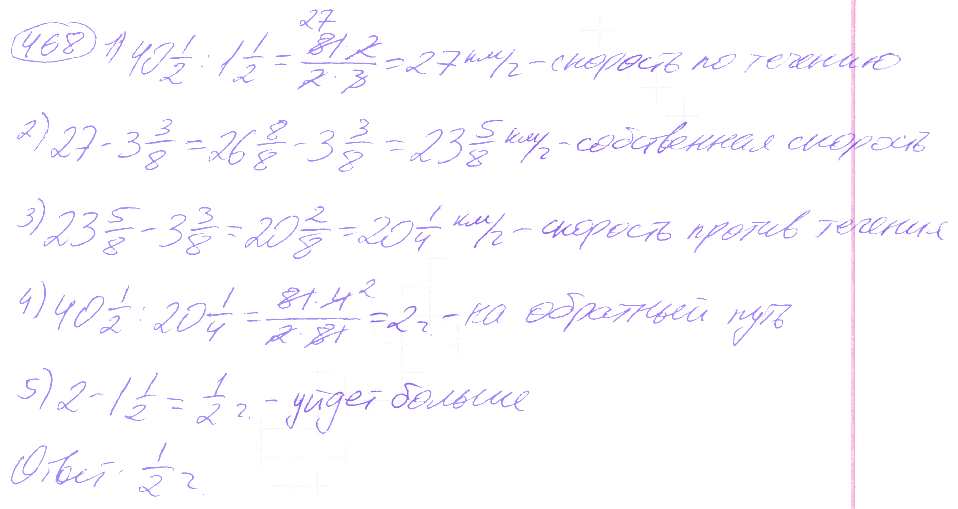 468 1) 40 1/2 : 1 1/2 = 81·2/2·3 = 27 км/г - скорость по течению
27
2) 27 - 3 3/8 = 26 8/8 - 3 3/8 = 23 5/8 км/г - собственная скорость
3) 23 5/8 - 3 3/8 = 20 2/8 = 20 1/4 км/г - скорость против течения
4) 40 1/2 : 20 1/4 = 81·4²/2·81 = 2 г. - на обратный путь
5) 2 - 1 1/2 = 1/2 г. - уйдет больше
Ответ: 1/2 г.